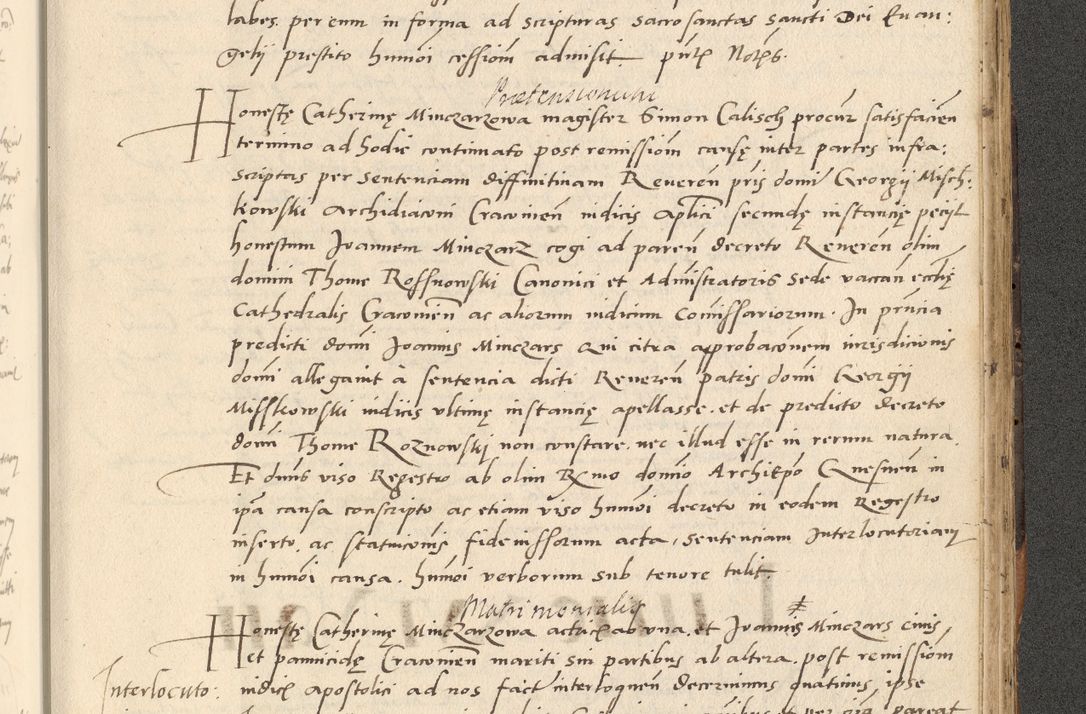 labes. per eum in forma ad scripturas sacrosanctas sancti Dei Euan:
gelij prestito humoi cessiom admisit pntl Notrs.
Pretensionum
Honestę Catherinę Minczarzowa magister Simon Calisch procur satisfacien
termino ad hodie continuato post remissiom causę inter partes infra:
scriptas per sentenciam diffinitinam Reueren pris domi Georgii Misch:
kowski Archidiaconi Cracouien iudicis aplici secundę instancię pecijt
honestum Joannem Minczarz cogi ad paren decreto Reueren olim
domini Thome Rossnowski Canonici et Administratoris sede vaccan eccłię
Cathedralis Cracouien ac aliorum iudicum comissariorum. In pncia
predicti domi Joannis Minczars qui citra approbaconem iurisdicionis
domi allegauit à sentencia dicti Reueren patris domi Georgii
Misskowski iudicis vltimę instancię apellasse. et de predicto decreto
domi Thome Roznowskj non constare. nec illud esse in rerum natura.
Et dnus viso Regestro ab olim Rxmo domio Archiepo Gnesnen in
ipa causa conscripto ac etiam viso humoi decreto in eodem Regestro
inserto, ac statuiconis fidenissorum acta, sentenciam Interlocutoriam
in humoi causa. humoi verborum sub tenore tulit.
Matrimonialis
Honestę Catherinę Minczarzowa actricl ab vna, et Joannis Minczars ciuis
et pannicidę Cracouien mariti sui partibus ab altera. post remissiom
Interlocuto: iudicl apostolici ad nos fact interloquen decernimus quatinus ipse
pareat